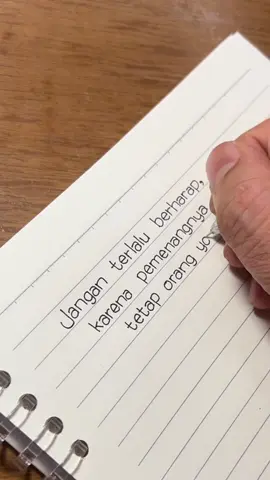 Jangan terlalu berharap,
karena pemenangnya
tetap orang ya